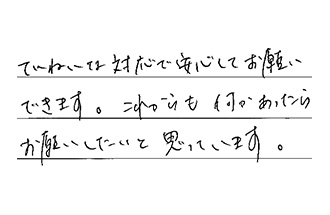 ていねいな対応で安心してお願い
できます。これからも何かあったら
お願いしたいと思っています。